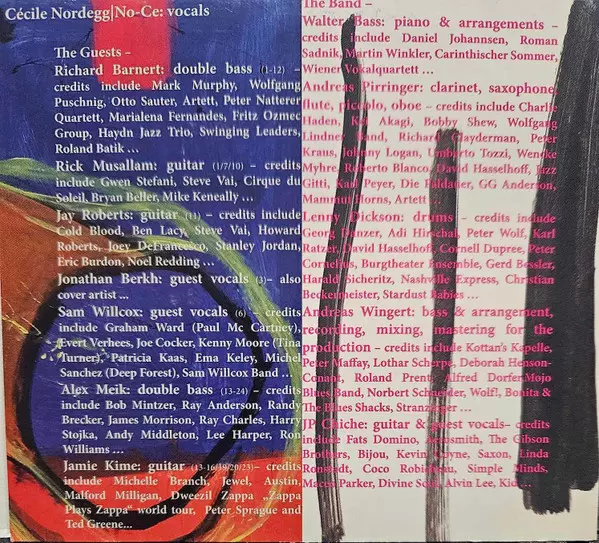 Cécile Nordegg|No-Ce: vocals
The Guests –
Richard Barnert: double bass (1-12) –
credits include Mark Murphy, Wolfgang
Puschnig, Otto Sauter, Artett, Peter Natterer
Quartett, Marialena Fernandes, Fritz Ozmec
Group, Haydn Jazz Trio, Swinging Leaders,
Roland Batik ...
Rick Musallam: guitar (1/7/10) – credits
include Gwen Stefani, Steve Vai, Cirque du
Soleil, Bryan Beller, Mike Keneally ...
Jay Roberts: guitar (11) – credits include
Cold Blood, Ben Lacy, Steve Vai, Howard
Roberts, Joey DeFrancesco, Stanley Jordan,
Eric Burdon, Noel Redding ...
Jonathan Berkh: guest vocals (3)– also
cover artist ...
Sam Willcox: guest vocals (6) – credits
include Graham Ward (Paul Mc Cartney),
Evert Verhees, Joe Cocker, Kenny Moore (Tina
Turner), Patricia Kaas, Ema Keley, Michel
Sanchez (Deep Forest), Sam Willcox Band ...
Alex Meik: double bass (13-24) – credits
include Bob Mintzer, Ray Anderson, Randy
Brecker, James Morrison, Ray Charles, Harry
Stojka, Andy Middleton, Lee Harper, Ron
Williams ...
Jamie Kime: guitar (13-16/19/20/23)– credits
include Michelle Branch, Jewel, Austin,
Malford Milligan, Dweezil Zappa „Zappa
Plays Zappa“ world tour, Peter Sprague and
Ted Greene...
The Band –
Walter Bass: piano & arrangements –
credits include Daniel Johannsen, Roman
Sadnik, Martin Winkler, Carinthischer Sommer,
Wiener Vokalquartett ...
Andreas Pirringer: clarinet, saxophone,
flute, piccolo, oboe – credits include Charlie
Haden, Kei Akagi, Bobby Shew, Wolfgang
Lindner Band, Richard Clayderman, Peter
Kraus, Johnny Logan, Umberto Tozzi, Wencke
Myhre, Roberto Blanco, David Hasselhoff, Jazz
Gitti, Karl Peyer, Die Paldauer, GG Anderson,
Mammut Horns, Artett ...
Lenny Dickson: drums – credits include
Georg Danzer, Adi Hirschal, Peter Wolf, Karl
Ratzer, David Hasselhoff, Cornell Dupree, Peter
Cornelius, Burgtheater Ensemble, Gerd Bessler,
Harald Sicheritz, Nashville Express, Christian
Beckermeister, Stardust Babies ...
Andreas Wingert: bass & arrangement,
recording, mixing, mastering for the
production – credits include Kottan's Kapelle,
Peter Maffay, Lothar Scherpe, Deborah Henson-
Conant, Roland Prent, Alfred Dorfer, Mojo
Blues Band, Norbert Schneider, Wolf!, Bonita &
The Blues Shacks, Stranzinger ...
JP Chiche: guitar & guest vocals– credits
include Fats Domino, Aerosmith, The Gibson
Brothers, Bijou, Kevin Coyne, Saxon, Linda
Ronstedt, Coco Robicheau, Simple Minds,
Maceo Parker, Divine Soul, Alvin Lee, Kid ...